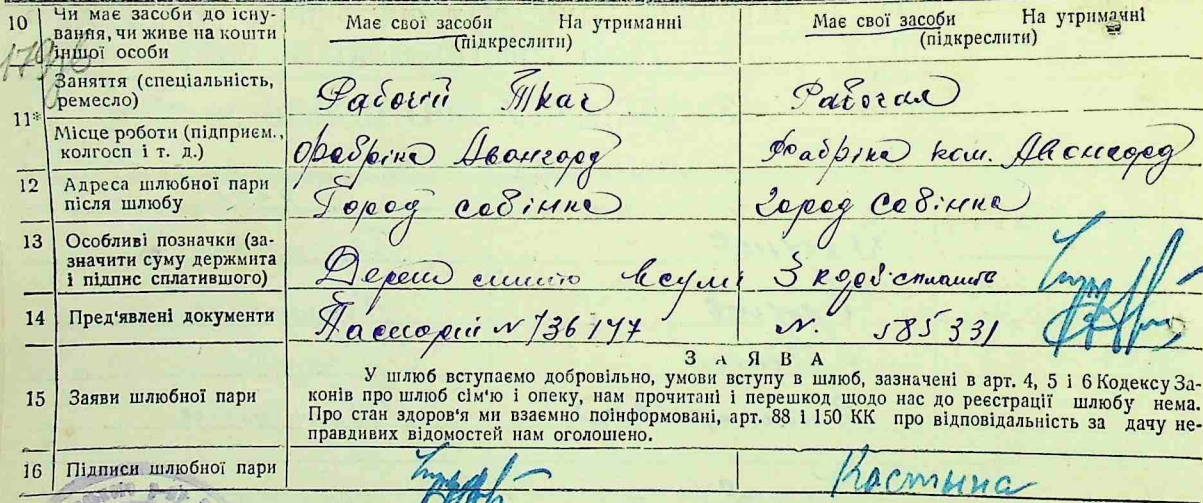 10 Чи має засоби до існування, чи живе на кошти іншої особи Має свої засоби На утриманні (підкреслити) Має свої засоби На утриманні (підкреслити)
11* Заняття (спеціальність, ремесло) Рабочий Ткач Рабочая
Місце роботи (підприєм., колгосп і т. д.) Фабрика Авонгорд Фабрика Авонгорд
12 Адреса шлюбної пари після шлюбу Город город
13 Особливі позначки (зазначити суму держмита і підпис сплатившого) 3
14 Пред'явлені документи Паспорт № 736177 №. 585331
15 Заяви шлюбної пари
ЗАЯВА
У шлюб вступаємо добровільно, умови вступу в шлюб, зазначені в арт. 4, 5 і 6 Кодексу За-
конів про шлюб сім'ю і опеку, нам прочитані і перешкод щодо нас до реєстрації шлюбу нема.
Про стан здоров'я ми взаємно поінформовані, арт. 88 і 150 КК про відповідальність за дачу не-
правдивих відомостей нам оголошено.
16 Підписи шлюбної пари Костына